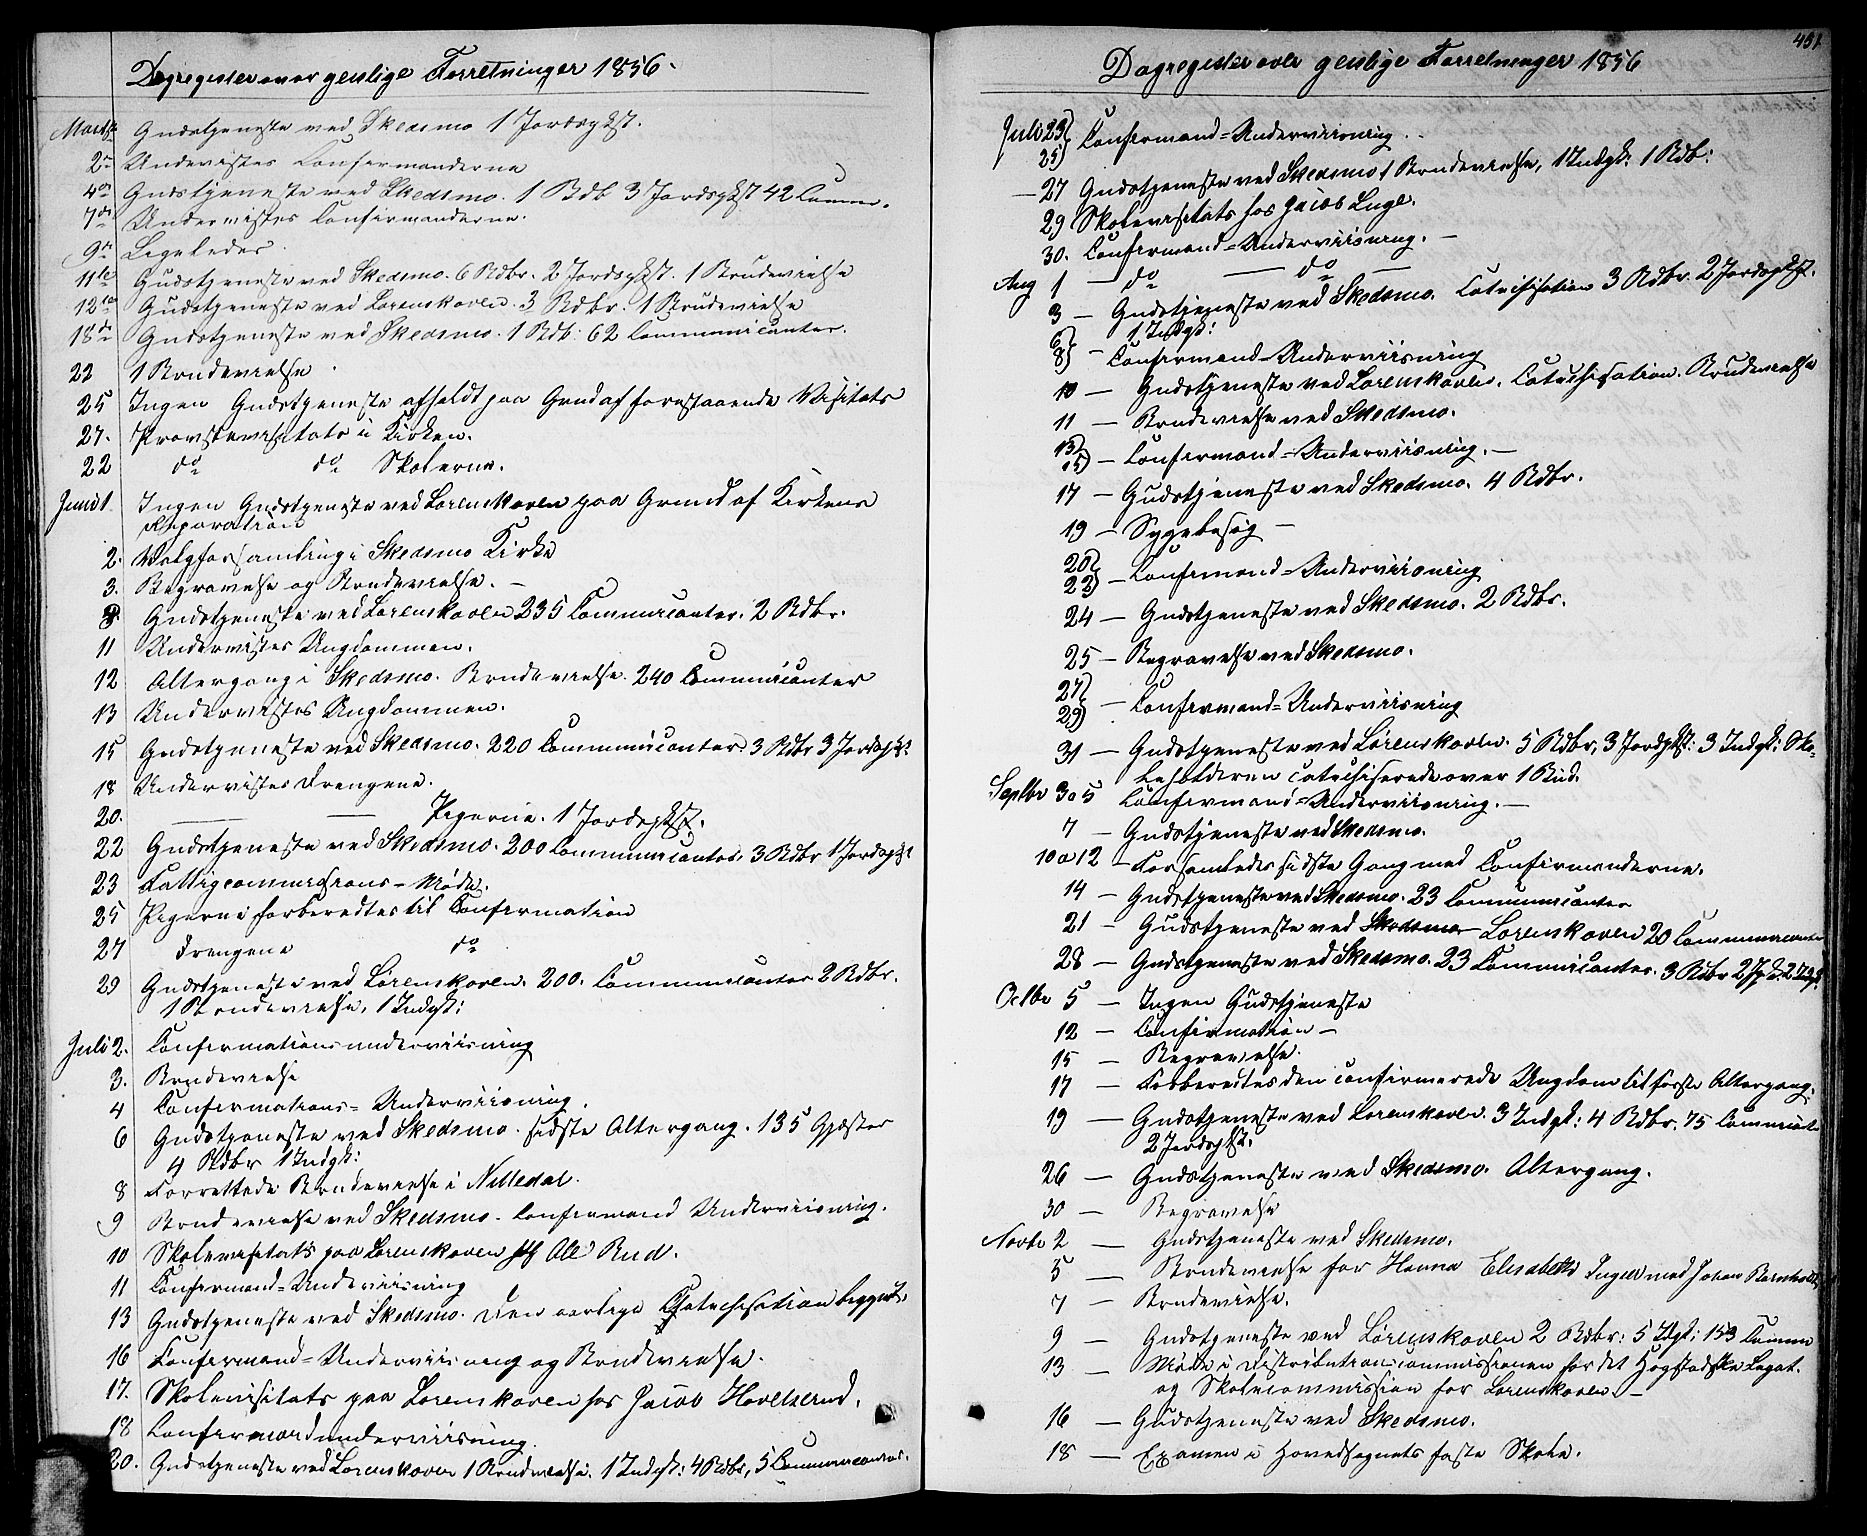 Dagregister over geistlige Forretninger 1856.
Marts Gudstjeneste ved Skedsmo 1 Jordspkst.
2den Undervistes Confirmanderne
4de Gudstjeneste ved Skedsmo. 1 Bdb 3 Jordspkst 42 Comm.
7de Undervistes Confirmanderne.
9de
11te Gudstjeneste ved Skedsmo. 6 Bdbr. 2 Jordspkst. 1 Brudevielse
12te Gudstjeneste ved Lørenskoven. 3 Bdbr. 1 Brudevielse
18de Gudstjeneste ved Skedsmo. 1 Bdb: 62 Communicanter.
22 1 Brudevielse
25 Ingen Gudstjeneste afholdt paa Grund af forestaaende Visitats
27. Provstevisitats i Kirken.
22 do do Skolerne.
Juni 1. Ingen Gudstjeneste ved Lørenskoven paa Grund af Kirkens
Reparation
2. Valgforsamling i Skedsmo Kirke
3. Begravelse og Brudevielse. –
8. Gudstjeneste ved Lørenskoven 235 Communicanter. 2 Bdbr.
11 Undervistes Ungdommen.
12 Altergang i Skedsmo. Brudevielse. 240 Communicanter
13 Undervistes Ungdommen.
15 Gudstjeneste ved Skedsmo. 220 Communicanter 3 Bdbr 3 Jordspkst
18 Undervistes Drengene.
20. — — Pigerne. 1 Jordspkst.
22 Gudstjeneste ved Skedsmo. 200 Communicanter. 3 Bdbr 1 Jordspkst
23 Fattigcommissions-Møde.
25 Pigerne forberedtes til Confirmation
27 Drengene do
29 Gudstjeneste ved Lørenskoven. 200. Communicanter 2 Bdbr.
1 Brudevielse, 1 Indgk:
Juli 2. Confirmationsunderviisning
3. Brudevielse
4 Confirmations-Underviisning.
6 Gudstjeneste ved Skedsmo. sidste Altergang. 135 Gjæster
4 Bdbr 1 Indgk:
8 Forrettede Brudevielse i Nittedal.
9 Brudevielse ved Skedsmo. Confirmand Underviisning.
10 Skolevisitats paa Lørenskoven hos Ole Rud.
11 Confirmand-Underviisning
13 Gudstjeneste ved Skedsmo. Den aarlige Catechisation begyndt.
16 Confirmand-Underviisning og Brudevielse.
17. Skolevisitats paa Lørenskoven hos Jacob Hovelsrud.
18 Confirmandunderviisning.
20. Gudstjeneste ved Lørenskoven 1 Brudevielse. 1 Indgk: 4 Bdbr, 5 Communicanter.
451.
Dagregister over geistlige Forretninger 1856
Juli 23}
25} Confirmand-Underviisning.
– 27 Gudstjeneste ved Skedsmo 1 Brudevielse, 1 Indgk: 1 Bdb:
29 Skolevisitats hos Jacob Luge.
30. Confirmand-Underviisning. –
Aug 1 – do — do —
3 – Gudstjeneste ved Skedsmo. Catechisation 3 Bdbr. 2 Jordspkst.
1 Indgk:
6}
8} – Confirmand-Underviisning
10 – Gudstjeneste ved Lørenskoven. Catechisation. Brudevielse
11 – Brudevielse ved Skedsmo.
13}
15} – Confirmand-Underviisning. –
17 – Gudstjeneste ved Skedsmo. 4 Bdbr.
19 – Sygebesøg –
20}
22} – Confirmand-Underviisning
24 – Gudstjeneste ved Skedsmo. 2 Bdbr.
25 – Begravelse ved Skedsmo.
27}
29} – Confirmand-Underviisning
31 – Gudstjeneste ved Lørenskoven. 5 Bdbr, 3 Jordpkst: 3 Indgk: Sko-
leholderen catechiserede over 1 Bud.
Septbr 3 o 5 Confirmand-Underviisning. –
7 – Gudstjeneste ved Skedsmo.
10 o 12 – Forsamledes sidste Gang med Confirmanderne.
14 – Gudstjeneste ved Skedsmo. 23 Communicanter
21 – Gudstjeneste ved Skedsmo Lørenskoven 20 Communicanter
28 – Gudstjeneste ved Skedsmo. 23 Communicanter. 3 Bdbr 2 Jpk. 2 Idgk.
Octbr 5 – Ingen Gudstjeneste
12 – Confirmation –
15 – Begravelse.
17 – Forberedtes den confirmerede Ungdom til første Altergang.
19 – Gudstjeneste ved Lørenskoven. 3 Indgk: 4 Bdbr. 75 Communict
2 Jordspkst.
26 – Gudstjeneste ved Skedsmo. Altergang.
30 – Begravelse
Novbr 2 – Gudstjeneste ved Skedsmo.
5 – Brudevielse for Hanna Elisabeths Inger med Johan Bernhard
7 – Brudevielse.
9 – Gudstjeneste ved Lørenskoven 2 Bdbr: 5 Idgk: 153 Commu
13 – Møde i Distributionscommissionen for det Høgstadske Legat.
og Skolecommission for Lørenskoven –
16 – Gudstjeneste ved Skedsmo.
18 – Examen i Hovedsognets faste Skole.